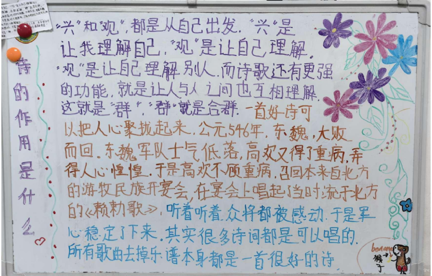 诗的作用是什么
"兴"和"观",都是从自己出发,"兴"是
让我理解自己,"观"是让自己理解
"观"是让自己理解别人,而诗歌还有更强
的功能,就是让人与人之间也互相理解,
这就是"群","群"就是合群。一首好诗可
以把人心聚拢起来,公元546年,东魏,大败
而回,东魏军队士气低落,高欢又得了重病,弄
得人心惶惶,于是高欢不顾重病,召回本来自北方
的游牧民族开宴会,在宴会上唱起了当时流于北方
的《敕勒歌》,听着听着,众将都被感动,于是军
心稳定了下来。其实很多诗词都是可以唱的,
所有歌曲去掉乐谱本身都是一首很好的诗。